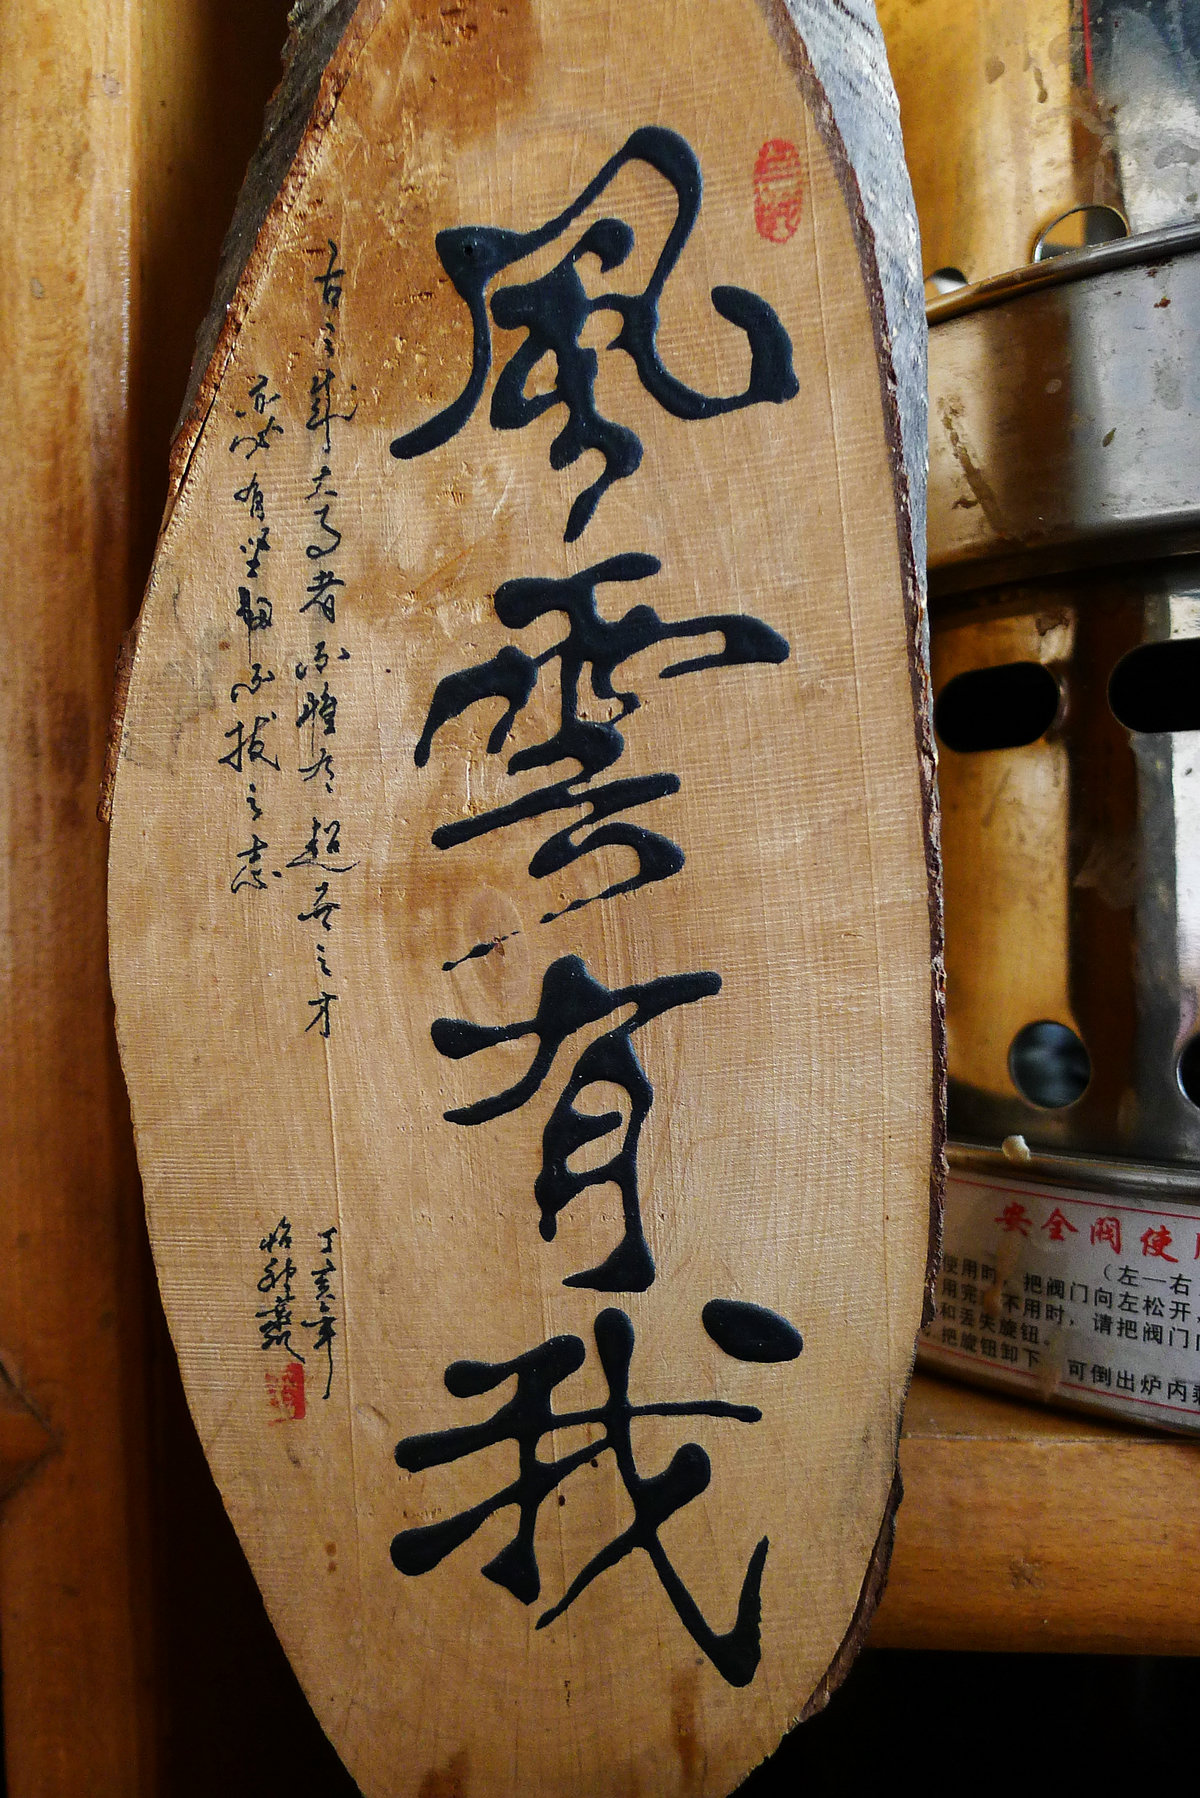 風雲有我
古之成大事者不惟有超世之才
亦必有坚韧不拔之志
丁亥年
安全阀使
（左一右
使用时，把阀门向左松开，
用完 不用时，请把阀门
和丢失旋钮。
把旋钮卸下
可倒出炉内